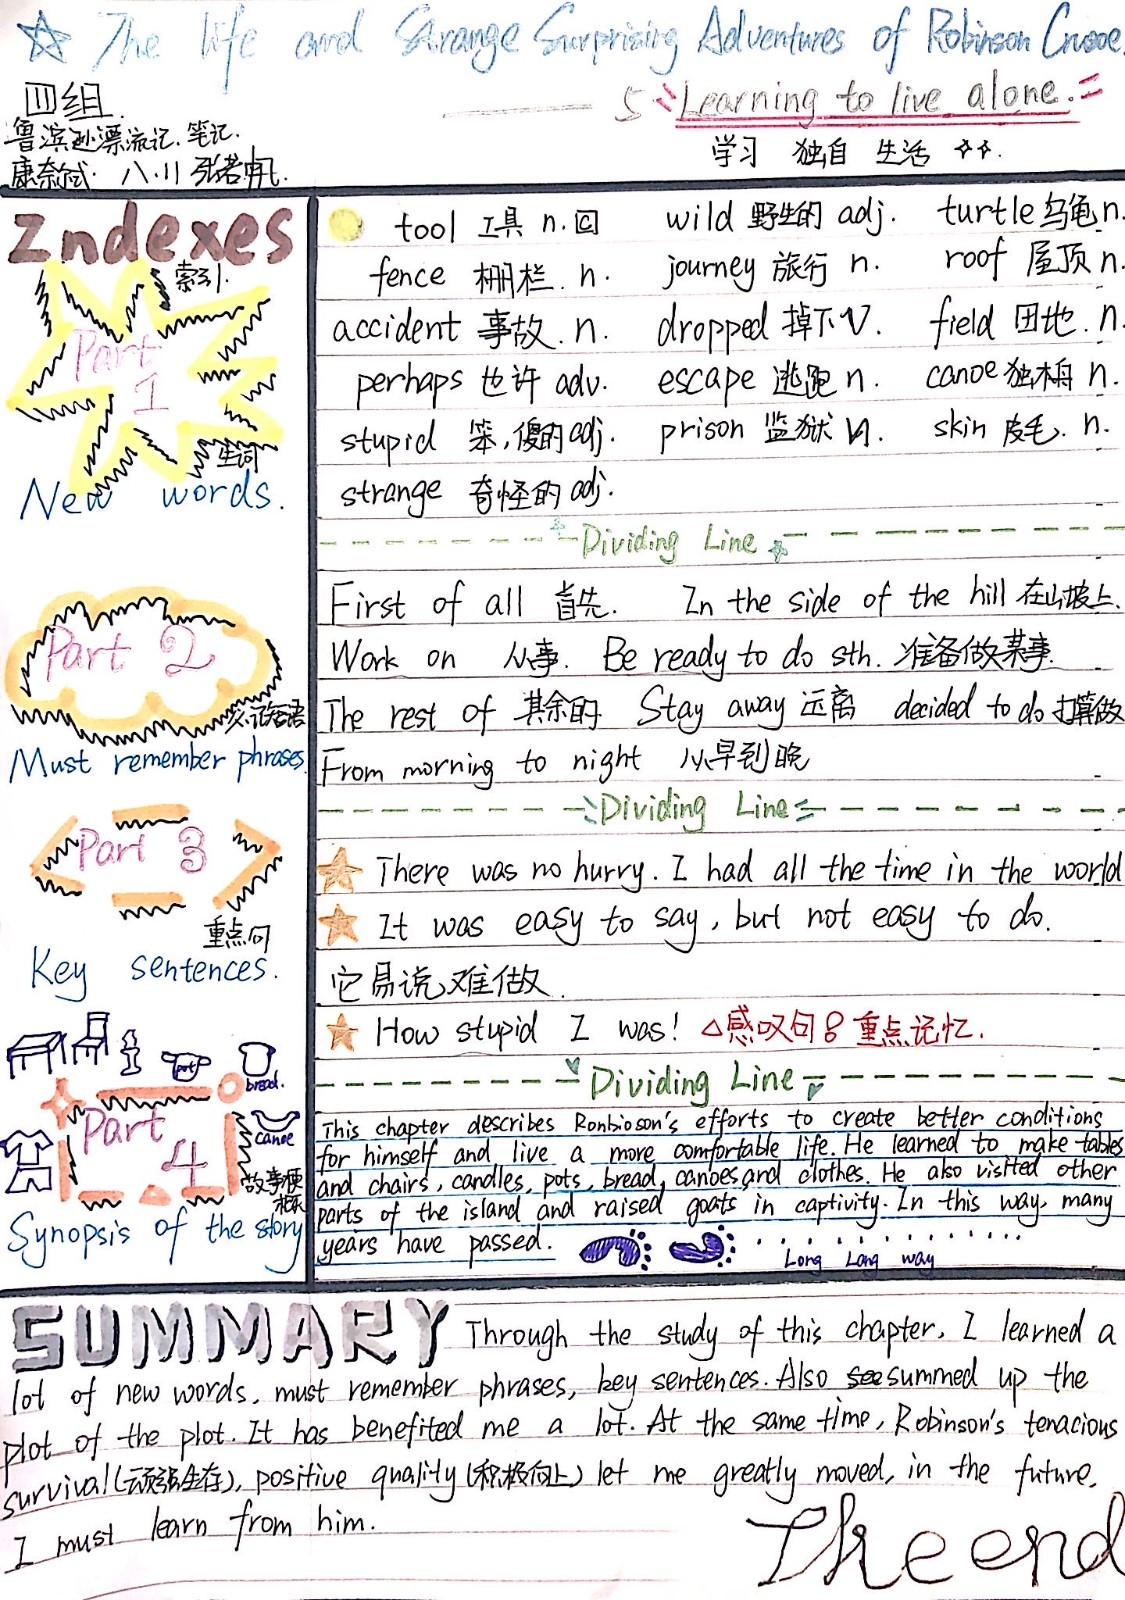 The life and Strange Surprising Adventures of Robinson Crusoe.
四组
5 Learning to live alone.
鲁滨逊漂流记.笔记.
学习 独自 生活
八.11
Indexes
索引.
Part 1
生词
New words.
tool 工具 n. C wild 野生的 adj. turtle 乌龟 n.
fence 栅栏. n. journey 旅行 n. roof 屋顶 n.
accident 事故. n. dropped 掉下 V. field 田地. n.
perhaps 也许 adv. escape 逃跑 n. canoe 独木舟 n.
stupid 笨,傻的 adj. prison 监狱 n. skin 皮毛. n.
strange 奇怪的 adj.
Dividing Line
Part 2
必记短语
Must remember phrases.
First of all 首先. In the side of the hill 在山坡上.
Work on 从事. Be ready to do sth. 准备做某事.
The rest of 其余的 Stay away 远离 decided to do 打算做
From morning to night 从早到晚
Dividing Line
Part 3
重点句
Key sentences.
There was no hurry. I had all the time in the world
It was easy to say, but not easy to do.
它易说难做
How stupid I was! △感叹句 重点记忆.
Dividing Line
pot
bread.
Part 4
canoe
故事梗概
Synopsis of the story
This chapter describes Ronbioson's efforts to create better conditions
for himself and live a more comfortable life. He learned to make tables
and chairs, candles, pots, bread, canoes and clothes. He also visited other
parts of the island and raised goats in captivity. In this way, many
years have passed.
Long Lang way
SUMMARY Through the study of this chapter, I learned a
lot of new words, must remember phrases, key sentences. Also summed up the
plot of the plot. It has benefited me a lot. At the same time, Robinson's tenacious
survival(顽强生存), positive quality(积极向上) let me greatly moved, in the future,
I must learn from him.
The end